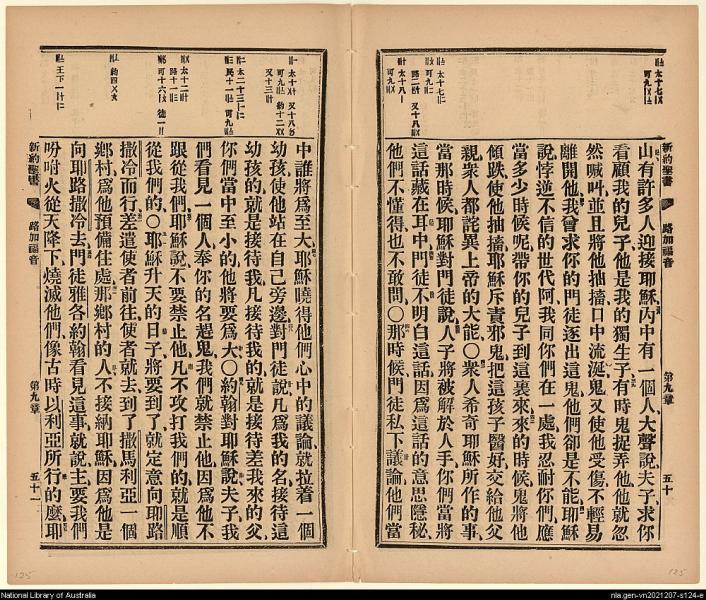 山有許多人迎接耶穌內中有一個人大聲說夫子求你
看顧我的兒子他是我的獨生子有時鬼捉弄他他就忽
然喊叫並且將他抽搐口中流涎鬼又使他受傷不輕易
離開他我曾求你的門徒逐出這鬼他們卻是不能耶穌
說悖逆不信的世代阿我同你們在一處我忍耐你們應
當多少時候呢帶你的兒子到這裏來來的時候鬼將他
傾跌使他抽搐耶穌斥責邪鬼把這孩子醫好交給他父
親衆人都詫異上帝的大能〇衆人希奇耶穌所作的事
當那時候耶穌對門徒說人子將被解於人手你們當將
這話藏在耳中門徒不明白這話因爲這話的意思隱秘
他們不懂得也不敢問〇那時候門徒私下議論他們當
新約聖書 路加福音 第九章 五十
中誰將爲至大耶穌曉得他們心中的議論就拉着一個
幼孩使他站在自己旁邊對門徒說凡爲我的名接待這
幼孩的就是接待我凡接待我的就是接待差我來的父
你們當中至小的他將要爲大〇約翰對耶穌說夫子我
們看見一個人奉你的名趕鬼我們就禁止他因爲他不
跟從我們耶穌說不要禁止他凡不攻打我們的就是順
從我們的〇耶穌升天的日子將要到了就定意向耶路
撒冷而行差遣使者前往使者就去到了撒馬利亞一個
鄉村爲他預備住處那鄉村的人不接納耶穌因爲他是
向耶路撒冷去門徒雅各約翰看見這事就說主要我們
吩咐火從天降下燒滅他們像古時以利亞所行的麼耶
新約聖書 路加福音 第九章 五十一
National Library of Australia
nla.gen-vn2021207-s124-e